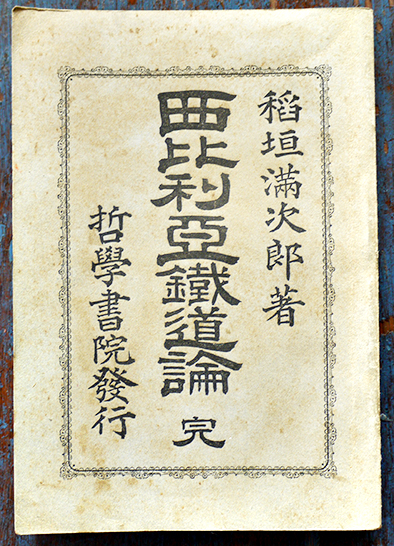 稻垣滿次郎著
西比利亞鐵道論 完
哲學書院發行